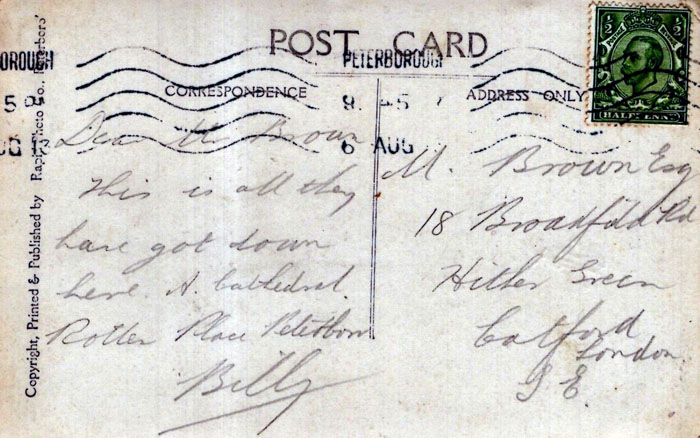 POST CARD
OROUGH
PETERBOROUGH
CORRESPONDENCE
ADDRESS ONLY
½ ½
HALFPENNY
9. 45
6 AUG
Dear Mr Brown
This is all they
have got down
here. A. Cathedral.
Rotten Place Peterboro
Billy
M. Brown Esq
18 Broadfield Rd
Hither Green
Catford
London
S. E.
Copyright, Printed & Published by Rapid Photo Co., Peterboro'